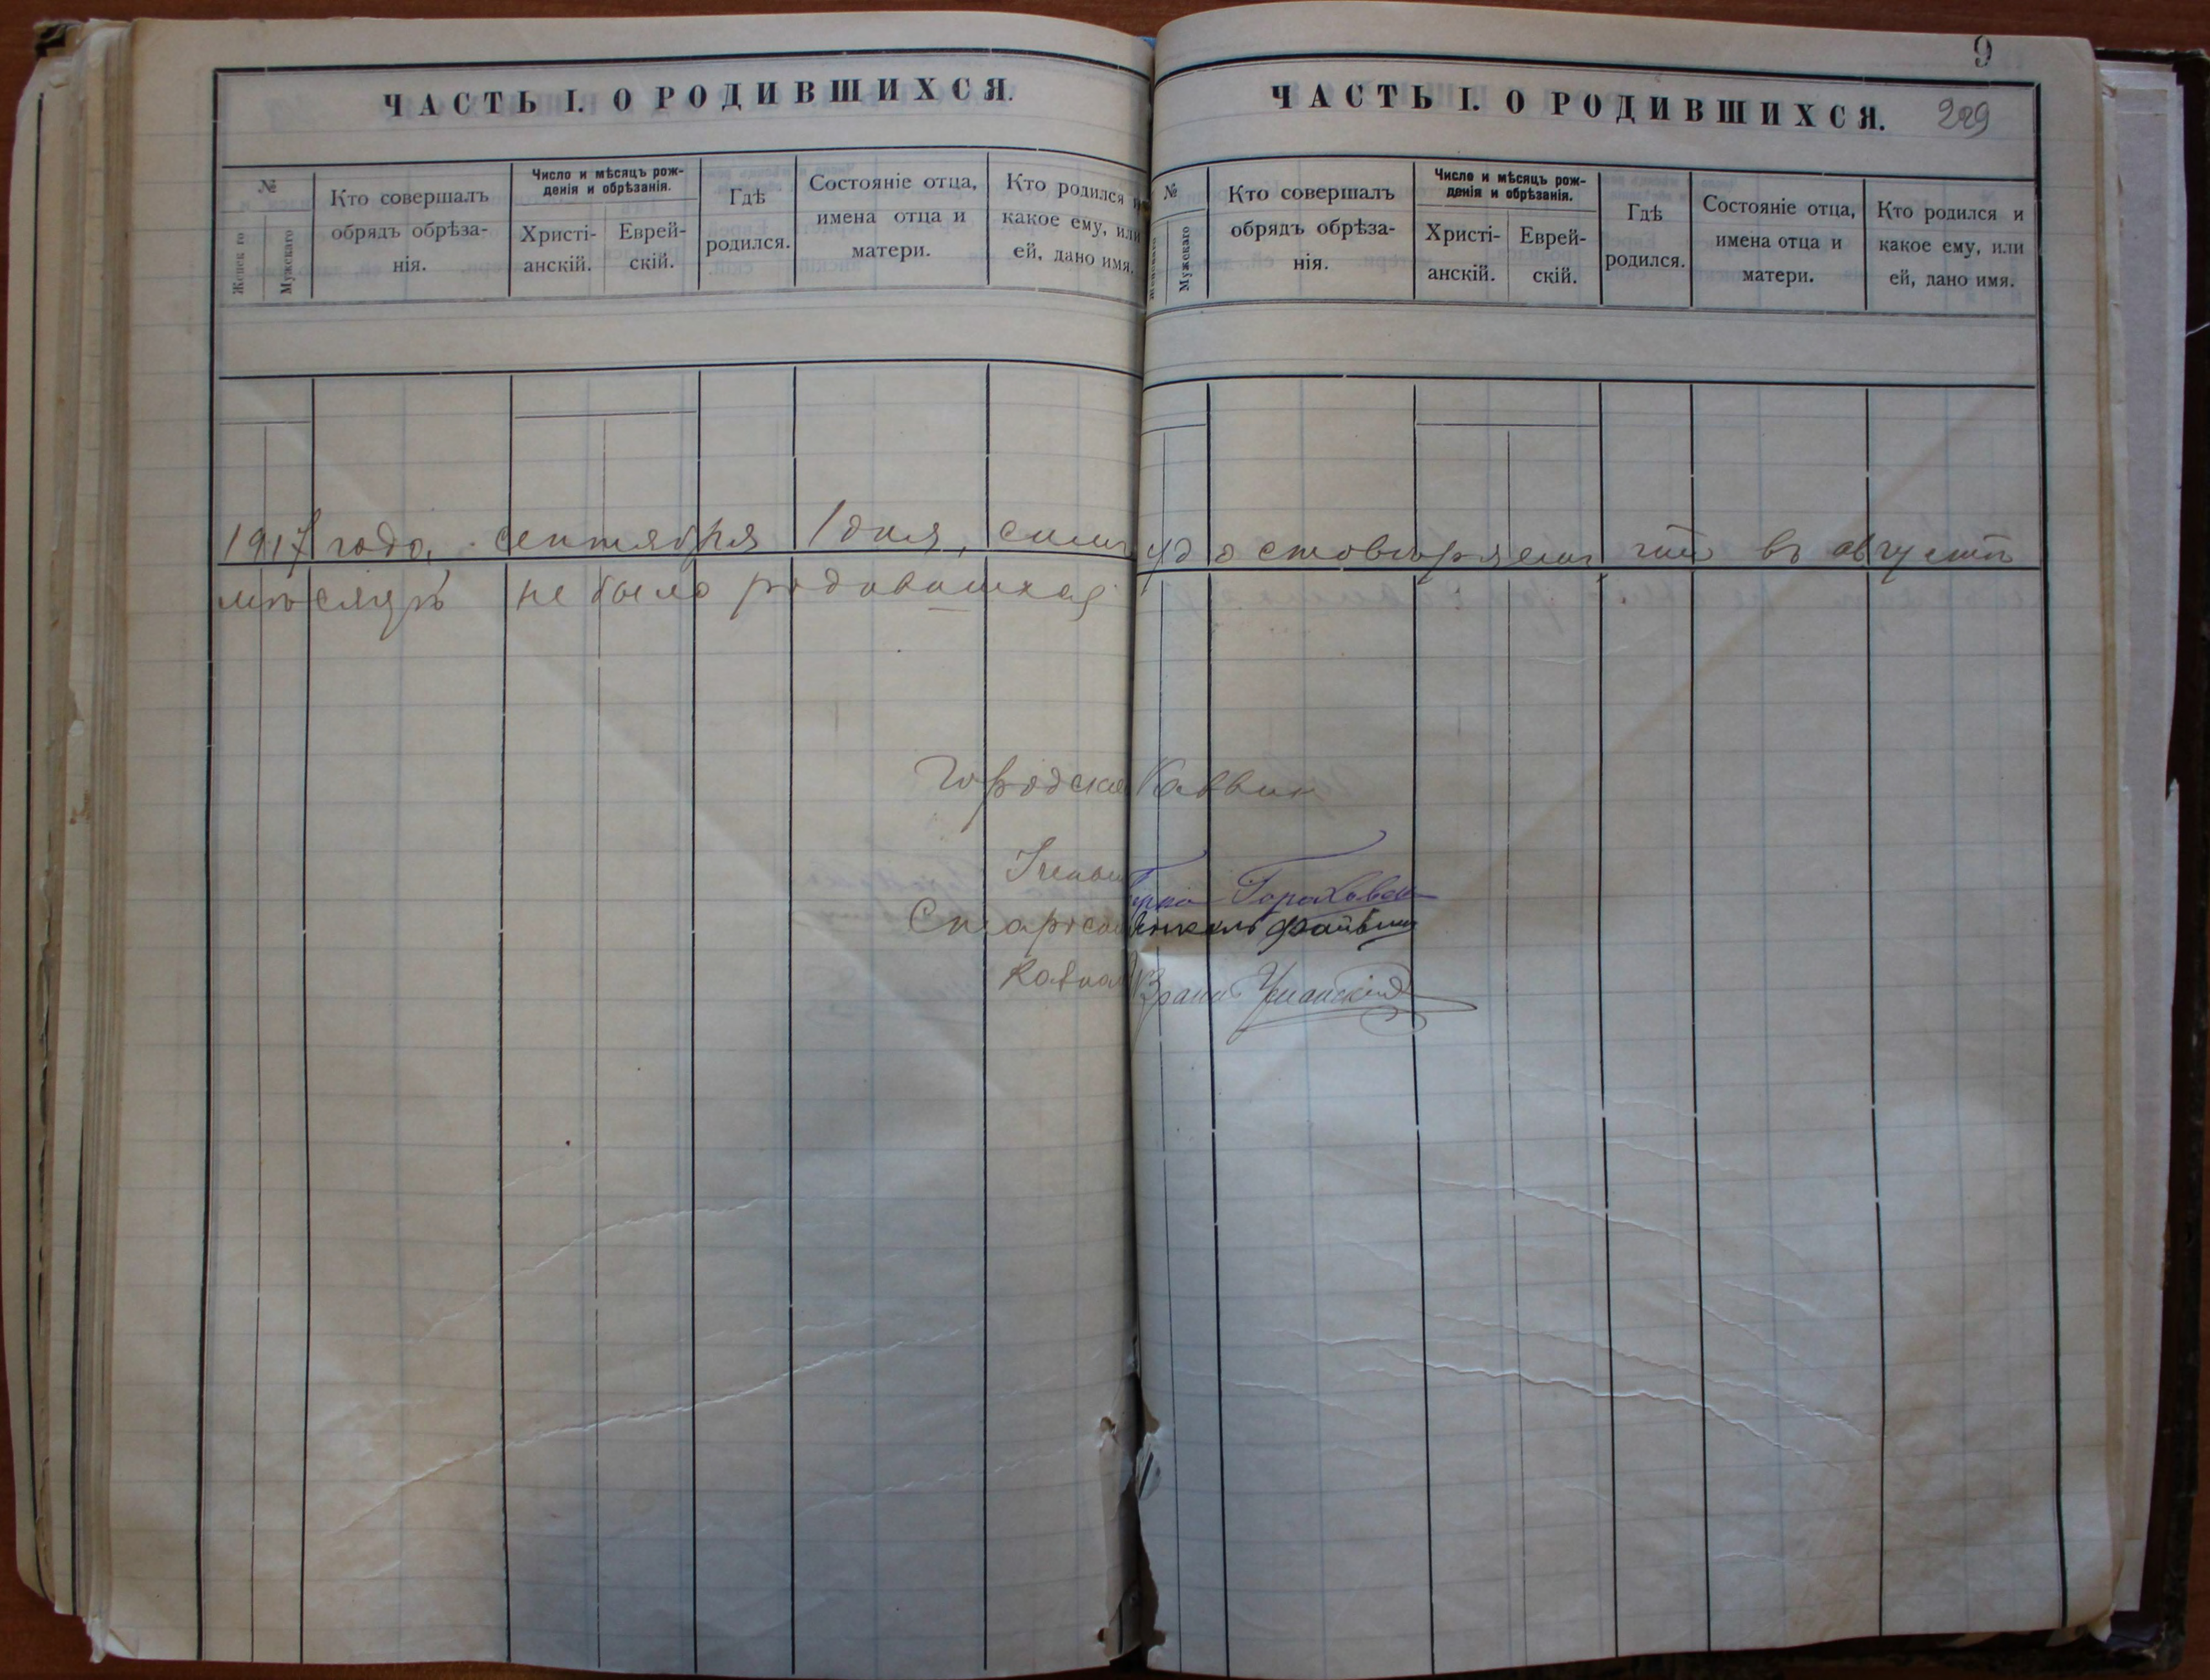 ЧАСТЬ I. О РОДИВШИХСЯ.
№
Женск го
Мужскаго
Кто совершалъ
обрядъ обрѣза-
нія.
Число и мѣсяцъ рож-
денія и обрѣзанія.
Христі-
анскій.
Еврей-
скій.
Гдѣ
родился.
Состояніе отца,
имена отца и
матери.
Кто родился и
какое ему, или
ей, дано имя.
9
ЧАСТЬ I. О РОДИВШИХСЯ.
229
№
Мужскаго
Кто совершалъ
обрядъ обрѣза-
нія.
Число и мѣсяцъ рож-
денія и обрѣзанія.
Христі-
анскій.
Еврей-
скій.
Гдѣ
родился.
Состояніе отца,
имена отца и
матери.
Кто родился и
какое ему, или
ей, дано имя.
1917 года, сентября 1 дня, симъ удостовѣряемъ что въ августѣ
мѣсяцѣ не было родившихся
Городской Раввин
Гороховск
Староста
Казнач Уманскій